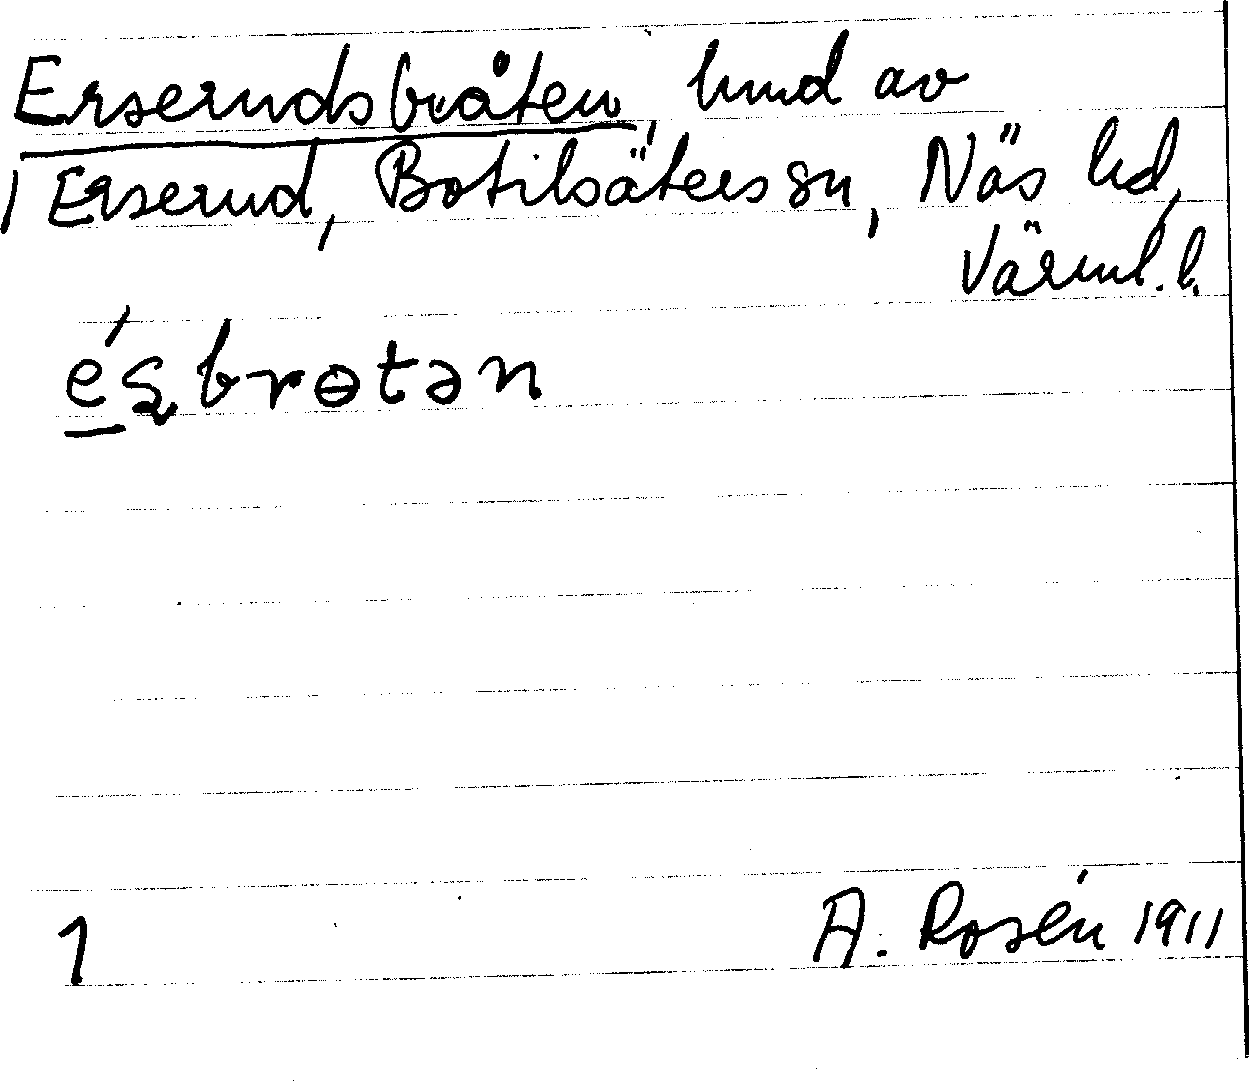 Erserudsbråten, hmd av
1 Erserud, Botilsäters sn, Näs hd,
Värml. l.
é̱ʂbrɵtən
1 A. Rosén 1911